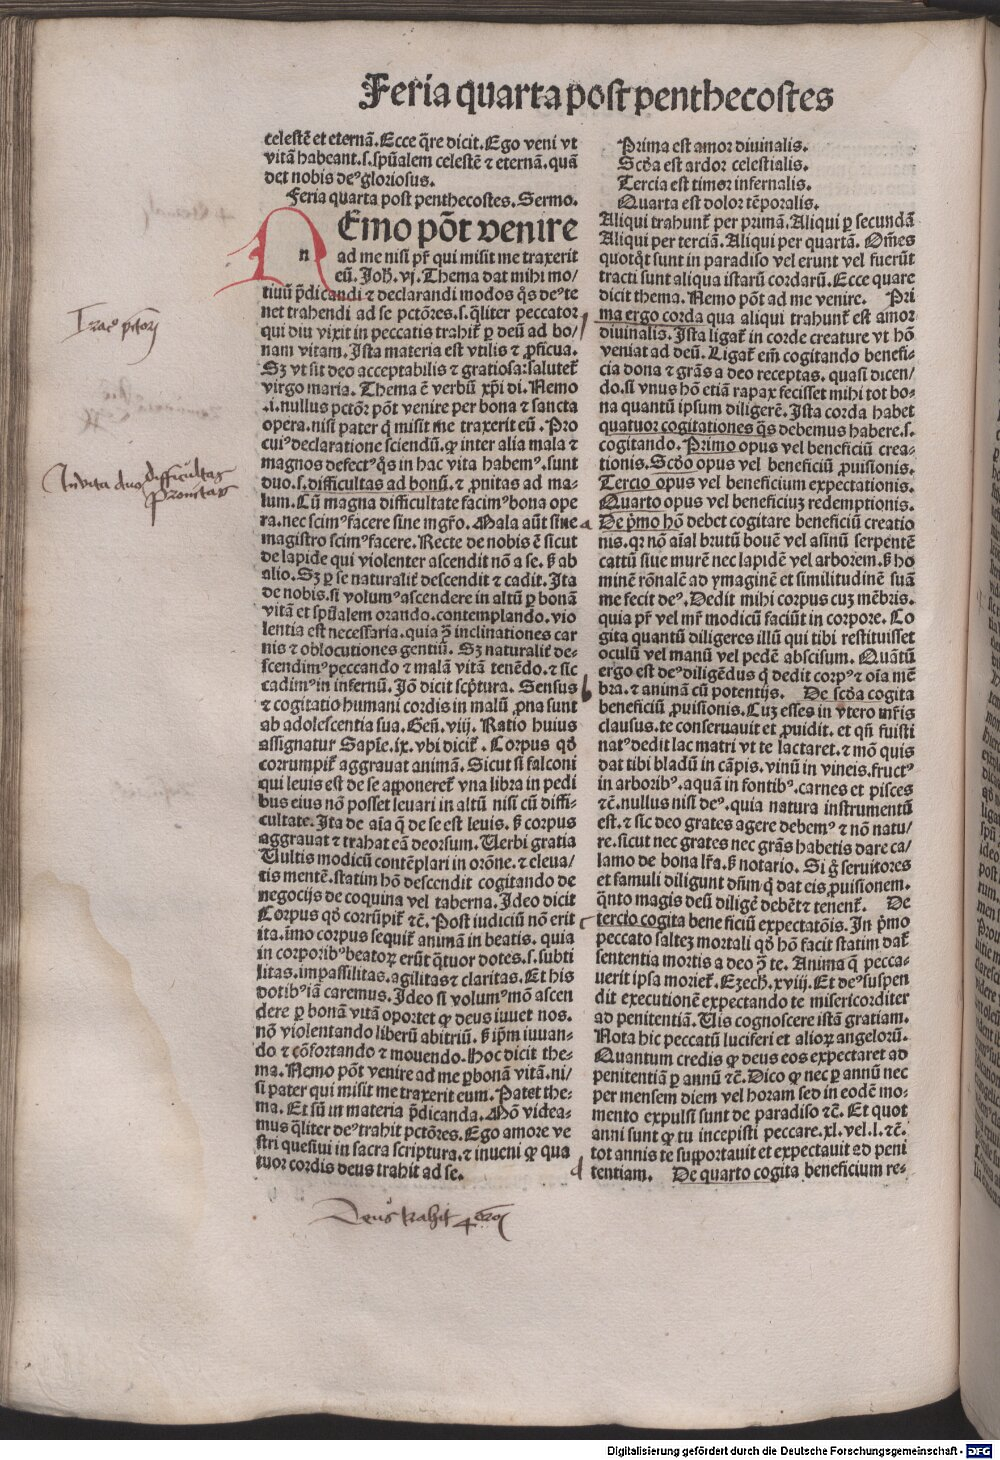 Feria quarta post penthecostes
celestē et eternā. Ecce q̄re dicit. Ego veni vt
vitā habeant. s. spūalem celestē ⁊ eternā. quā
det nobis deꝰ gloriosus.
Feria quarta post penthecostes. Sermo.
Emo pōt venire
n
ad me nisi pr̄ qui misit me traxerit
eū. Joh̄. vj. Thema dat mihi mo/
tiuū p̄dicandi ⁊ declarandi modos q̄s deꝰ te
net trahendi ad se pctōres. s. q̄liter peccator
qui diu vixit in peccatis trahit̄ ꝑ deū ad bo/
nam vitam. Ista materia est vtilis ⁊ ꝓficua.
Sꝫ vt sit deo acceptabilis ⁊ gratiosa: salutet̄
virgo maria. Thema ē verbū xp̄i di. Nemo
.i. nullus pctōꝝ pōt venire per bona ⁊ sancta
opera. nisi pater q̄ misit me traxerit eū. Pro
cuiꝰ declaratione sciendū. ꝙ inter alia mala ⁊
magnos defectꝰ q̄s in hac vita habemꝰ. sunt
duo. s. difficultas ad bonū. ⁊ ꝓnitas ad ma-
lum. Cū magna difficultate facimꝰ bona ope
ra. nec scimꝰ facere sine mgr̄o. Mala aūt sine
magistro scimꝰ facere. Recte de nobis ē sicut
de lapide qui violenter ascendit nō a se. ß ab
alio. Sꝫ ꝑ se naturalit̄ descendit ⁊ cadit. Ita
de nobis. si volumꝰ ascendere in altū ꝑ bonā
vitā et spūalem orando. contemplando. vio
lentia est necessaria. quia ꝯ̄ inclinationes car
nis ⁊ oblocutiones gentiū. Sꝫ naturalit̄ de-
scendimꝰ peccando ⁊ malā vitā tenēdo. ⁊ sic
cadimꝰ in infernū. Jō dicit scp̄tura. Sensus
⁊ cogitatio humani cordis in malū ꝓna sunt
ab adolescentia sua. Geñ. viij. Ratio huius
assignatur Sapīe. ix. vbi dicit̄. Corpus qd̄
corrumpit̄ aggrauat animā. Sicut si falconi
qui leuis est de se apponeret̄ vna libra in pedi
bus eius nō posset leuari in altū nisi cū diffi-
cultate. Ita de aīa q̄ de se est leuis. ß corpus
aggrauat ⁊ trahat eā deorsum. Uerbi gratia
Uultis modicū contēplari in orōne. ⁊ eleua/
tis mentē. statim hō descendit cogitando de
negocijs de coquina vel taberna. Ideo dicit
Corpus qd̄ corrūpit̄ ⁊c̄. Post iudiciū nō erit
ita. īmo corpus sequit̄ animā in beatis. quia
in corporibꝰ beatoꝝ erūt q̄tuor dotes. s. subti
litas. impassilitas. agilitas ⁊ claritas. Et his
dotibꝰ iā caremus. Ideo si volumꝰ mō ascen
dere ꝑ bonā vitā oportet ꝙ deus iuuet nos.
nō violentando liberū abitriū. ß ip̄m iuuan-
do ⁊ cōfortando ⁊ mouendo. Hoc dicit the-
ma. Nemo pōt venire ad me ꝑ bonā vitā. ni/
si pater qui misit me traxerit eum. Patet the-
ma. Et sū in materia p̄dicanda. Mō videa-
mus q̄liter deꝰ trahit pctōres. Ego amore ve
stri quesiui in sacra scriptura. ⁊ inueni ꝙ qua
tuor cordis deus trahit ad se.
Prima est amor diuinalis.
Scd̄a est ardor celestialis.
Tercia est timor infernalis.
Quarta est dolor tēporalis.
Aliqui trahunt̄ per primā. Aliqui ꝑ secundā
Aliqui per terciā. Aliqui per quartā. Om̄es
quotq̄t sunt in paradiso vel erunt vel fuerūt
tracti sunt aliqua istarū cordarū. Ecce quare
dicit thema. Nemo pōt ad me venire. Pri
ma ergo corda qua aliqui trahunt̄ est amor
diuinalis. Ista ligat̄ in corde creature vt hō
veniat ad deū. Ligat̄ em̄ cogitando benefi-
cia dona ⁊ grās a deo receptas. quasi dicen/
do. si vnus hō etiā rapax fecisset mihi tot bo-
na quantū ipsum diligerē. Ista corda habet
quatuor cogitationes q̄s debemus habere. s.
cogitando. Primo opus vel beneficiū crea-
tionis. Scd̄o opus vel beneficiū ꝓuisionis.
Tercio opus vel beneficium expectationis.
Quarto opus vel beneficiuꝫ redemptionis.
De p̄mo hō debet cogitare beneficiū creatio
nis. qꝛ nō aīal brutū bouē vel asinū serpentē
cattū siue murē nec lapidē vel arborem. ß ho
minē rōnalē ad ymaginē et similitudinē suā
me fecit deꝰ. Dedit mihi corpus cuꝫ mēbris.
quia pr̄ vel mr̄ modicū faciūt in corpore. Co
gita quantū diligeres illū qui tibi restituisset
oculū vel manū vel pedē abscisum. Quātū
ergo est deꝰ diligēdus q̄ dedit corpꝰ ⁊ oīa mē
bra. ⁊ animā cū potentijs. De scd̄a cogita
beneficiū ꝓuisionis. Cuꝫ esses in vtero mr̄is
clausus. te conseruauit et ꝓuidit. et qñ fuisti
natꝰ dedit lac matri vt te lactaret. ⁊ mō quis
dat tibi bladū in cāpis. vinū in vineis. fructꝰ
in arboribꝰ. aquā in fontibꝰ. carnes et pisces
⁊c̄. nullus nisi deꝰ. quia natura instrumentū
est. ⁊ sic deo grates agere debemꝰ ⁊ nō natu/
re. sicut nec grates nec grās habetis dare ca/
lamo de bona lr̄a. ß notario. Si g̊ seruitores
et famuli diligunt dn̄m q̄ dat eis ꝓuisionem.
q̄nto magis deū diligē debēt ⁊ tenent̄. De
tercio cogita beneficiū expectatōis. In p̄mo
peccato salteꝫ mortali qd̄ hō facit statim dat̄
sententia mortis a deo ꝯ̄ te. Anima q̄ pecca-
uerit ipsa moriet̄. Ezech̄. xviij. Et deꝰ suspen
dit executionē expectando te misericorditer
ad penitentiā. Uis cognoscere istā gratiam.
Nota hic peccatū luciferi et alioꝝ angeloꝝ.
Quantum credis ꝙ deus eos expectaret ad
penitentiā ꝑ annū ⁊c̄. Dico ꝙ nec ꝑ annū nec
per mensem diem vel horam sed in eodē mo-
mento expulsi sunt de paradiso ⁊c̄. Et quot
anni sunt ꝙ tu incepisti peccare. xl. vel. l. ⁊c̄.
tot annis te supportauit et expectauit ad peni
tentiam. De quarto cogita beneficium re-
In vita duo difficultas
Pronitas
Deus trahit 4or